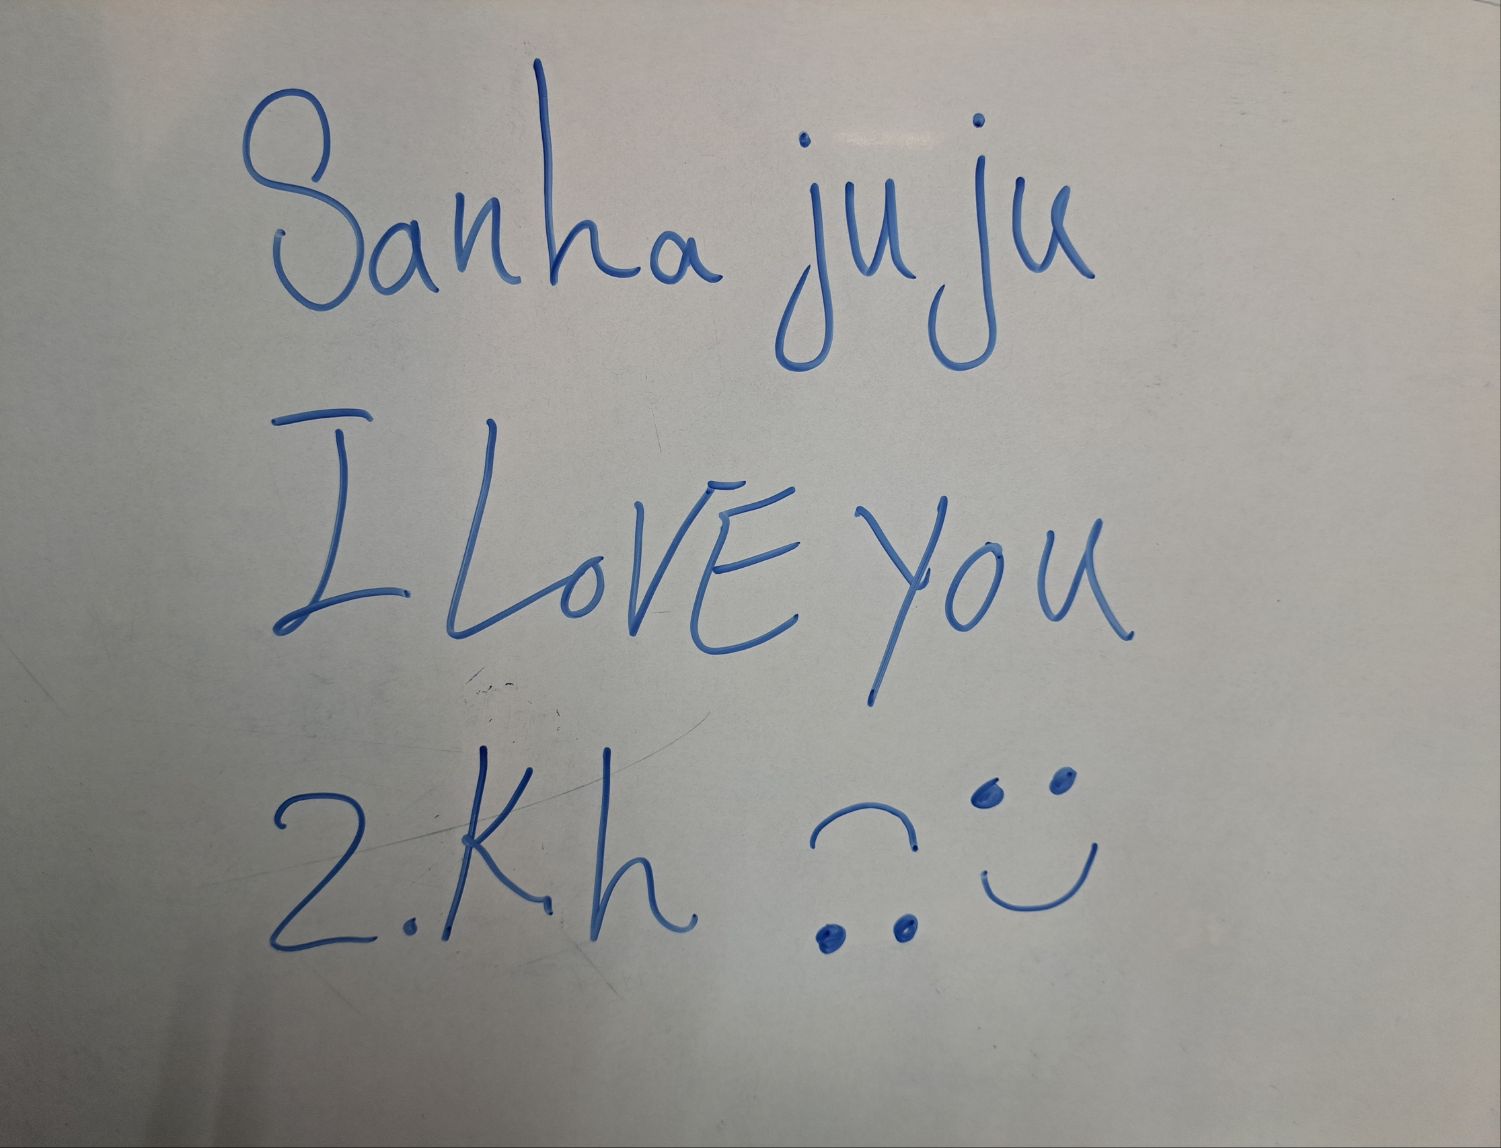 Sanha juju
I LoVE you
2.Kh